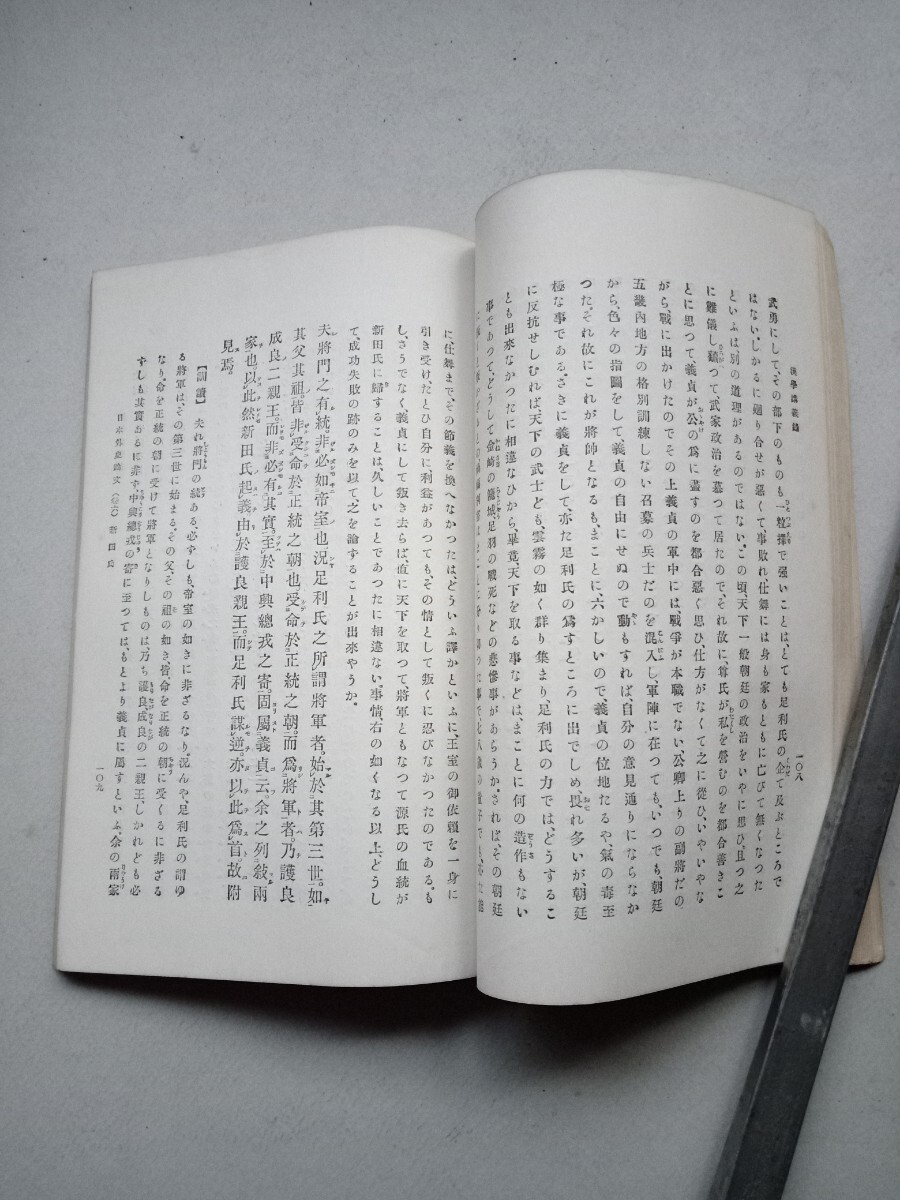 漢學講義錄
一〇八
武勇にして、その部下のものも一粒擇で强いことは、とても足利氏の企て及ぶところで
はない。しかるに廻り合せが惡くて、事敗れ仕舞には身も家もともに亡びて無くなつた
といふは別の道理があるのではない。この頃、天下一般朝廷の政治をいやに思ひ、且つ之
に難儀し顧つて、武家政治を慕つて居たので、それ故に、尊氏が私を營むのを都合善きこ
とに思つて、義貞が公の爲に盡すのを都合惡く思ひ、仕方がなくて之に從ひ、いやいやな
がら戰に出かけたのでその上義貞の軍中には、戰爭が本職でない、公卿上りの副將だの
五畿內地方の格別訓練しない召募の兵士だのを混入し、軍陣に在つても、いつでも、朝廷
から、色々の指圖をして、義貞の自由にせぬので動もすれば自分の意見通りにならなか
つた。それ故にこれが將師となるも、まことに、六かしいので、義貞の位地たるや、氣の毒至
極な事である。ざきに義貞をして、亦た足利氏の爲すところに出でしめ、畏れ多いが、朝廷
に反抗せしむれば、天下の武士ども、雲霧の如く群り集まり、足利氏の力では、どうするこ
とも出來なかつたに相違なひから、畢竟、天下を取る事などは、まことに何の造作もない
事であつて、どうして金崎の籠城、足羽の戰死などの悲慘事があらうか。されば、その朝廷
に、仕舞まで、その節義を換へなかつたは、どういふ譯かといふに、王室の御依賴を一身に
引き受けた、たひと自分に利益があつても、その情として叛くに忍びなかつたのである。も
し、さうでなく、義貞にして叛き去らば、直に天下を取つて將軍ともなつて源氏の血統が
新田氏に歸することは、久しいことであつたに相違ない。事情、右の如くなる以上、どうし
て、成功失敗の跡のみを以て、之を論ずることが出來やうか。
夫將門之有統。非必如帝室也。況足利氏之所謂將軍者。始於其第三世。如
其父其祖。皆非受命於正統之朝也。受命於正統之朝。而爲將軍者。乃護良
成良二親王。而非必有其實。至於中興總戎之寄。固屬義貞云。余之列敍兩
家也。以此。然新田氏起義。由於護良親王。而足利氏謀逆。亦以此爲首。故附
見焉。
【訓讀】 夫れ將門の統ある、必ずしも、帝室の如きに非ざるなり。況んや、足利氏の謂ゆ
る將軍は、その第三世に始まる。その父、その祖の如き、皆、命を正統の朝に受くるに非ざる
なり。命を正統の朝に受けて將軍となりしものは、乃ち護良、成良の二親王、しかれども必
ずしも其實あるに非ず。中興總戎の寄に至つては、もとより義貞に屬すといふ。余の兩家
日本外史論文 (卷六) 新田氏
一〇九